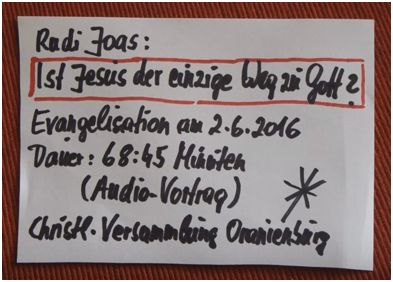 Rudi Joas:
Ist Jesus der einzige Weg zu Gott?
Evangelisation am 2.6.2016
Dauer: 68:45 Minuten
(Audio-Vortrag)
Christl. Versammlung Oranienburg